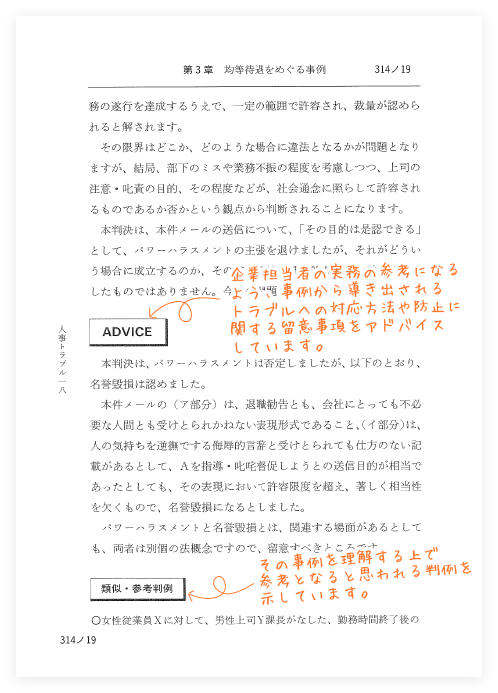 第3章　均等待遇をめぐる事例　314／19
務の遂行を達成するうえで、一定の範囲で許容され、裁量が認めら
れると解されます。
その限界はどこか、どのような場合に違法となるかが問題となり
ますが、結局、部下のミスや業務不振の程度を考慮しつつ、上司の
注意・叱責の目的、その程度などが、社会通念に照らして許容され
るものであるか否かという観点から判断されることになります。
本判決は、本件メールの送信について、「その目的は是認できる」
として、パワーハラスメントの主張を退けましたが、それがどうい
う場合に成立するのか、その
したものではありません。今
企業担当者の実務の参考になる
よう、事例から導き出される
トラブルへの対応方法や防止に
関する留意事項をアドバイス
しています。
ADVICE
人事トラブル一八
本判決は、パワーハラスメントは否定しましたが、以下のとおり、
名誉毀損は認めました。
本件メールの（ア部分）は、退職勧告とも、会社にとっても不必
要な人間とも受けとられかねない表現形式であること、（イ部分）は、
人の気持ちを逆撫でする侮辱的言辞と受けとられても仕方のない記
載があるとして、Aを指導・叱咤督促しようとの送信目的が相当で
あったとしても、その表現において許容限度を超え、著しく相当性
を欠くもので、名誉毀損になるとしました。
パワーハラスメントと名誉毀損とは、関連する場面があるとして
も、両者は別個の法概念ですので、留意すべきところです
その事例を理解する上で
参考となると思われる判例を
示しています。
類似・参考判例
○女性従業員Xに対して、男性上司Y課長がなした、勤務時間終了後の
314／19